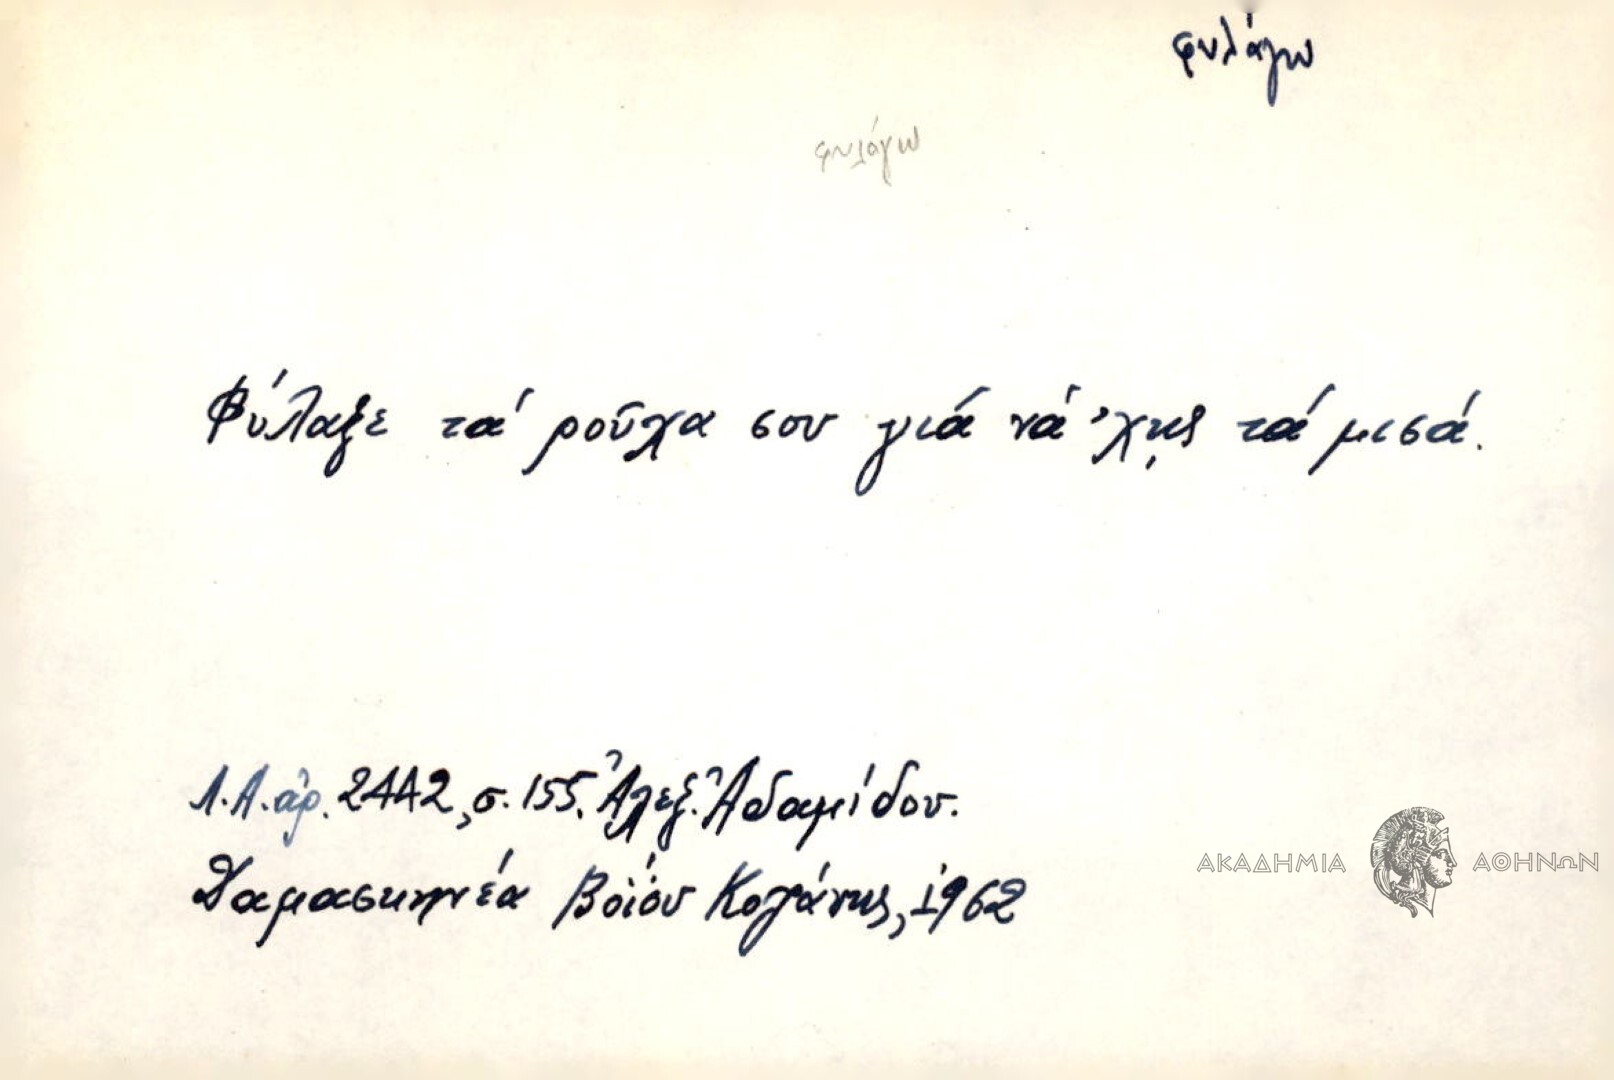 φυλάγω
φυλάγω
Φύλαξε τά ροῦχα σου γιά νά 'χῃς τά μισά.
Λ.Α. ἀρ. 2442, σ. 155, Ἀλεξ. Ἀδαμίδου.
Δαμασκηνέα Βοΐου Κοζάνης, 1962
ΑΚΑΔΗΜΙΑ ΑΘΗΝΩΝ